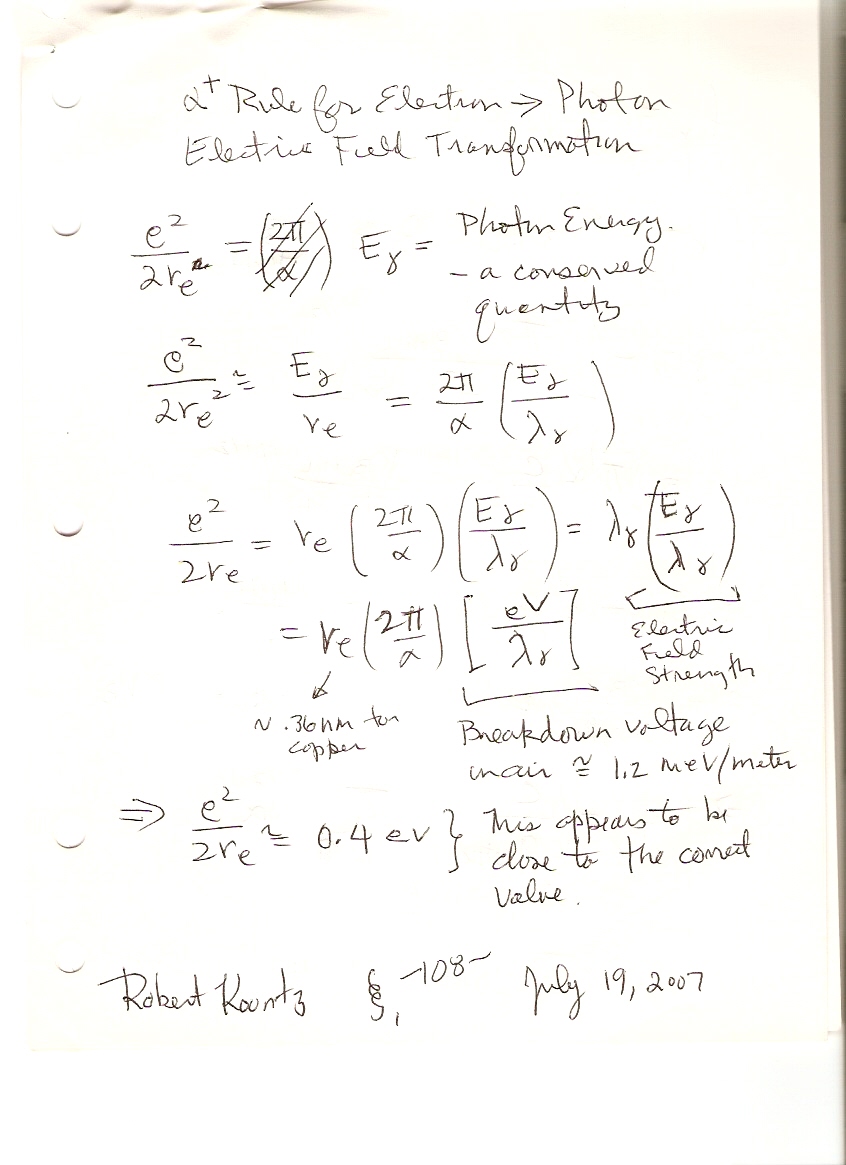 α⁺ Rule for Electron → Photon
Electric Field Transformation
e² / 2rₑ = (2π/α) E_γ = Photon Energy.
- a conserved
quantity
e² / 2rₑ² ≅ E_γ / rₑ = 2π/α (E_γ / λ_γ)
e² / 2rₑ = rₑ (2π/α) (E_γ / λ_γ) = λ_γ (E_γ / λ_γ)
= rₑ (2π/α) [eV / λ_γ]
Electric
Field
Strength
~ .36nm for
copper
Breakdown voltage
in air ≅ 1.2 MeV/meter
⇒ e² / 2rₑ ≅ 0.4 ev } This appears to be
close to the correct
value.
Robert Koontz §₁ -108- July 19, 2007